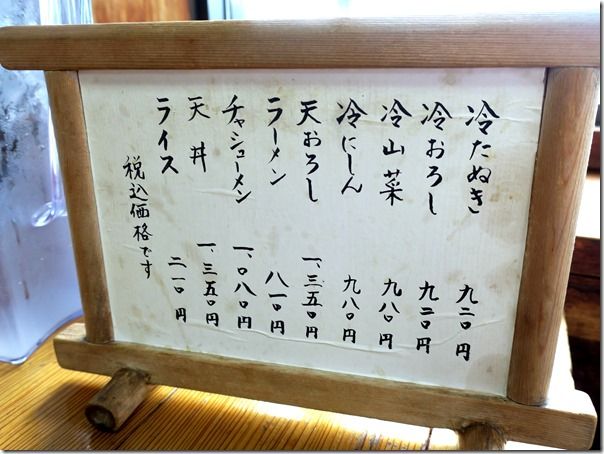 冷たぬき 九二〇円
冷おろし 九二〇円
冷山菜 九八〇円
冷にしん 九八〇円
天おろし 一、三五〇円
ラーメン 八一〇円
チャシューメン 一、〇八〇円
天丼 一、三五〇円
ライス 二一〇円
税込価格です